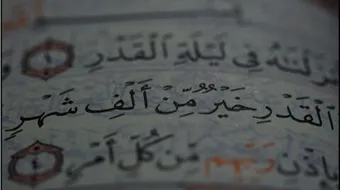 نزلنه فِى لَيْلَةِ الْقَدْرِ ١
الْقَدْرِ خَيْرٌ مِّنْ أَلْفِ شَهْرٍ
بِإِذْنِ رَبِّهِم مِّن كُلِّ أَمْرٍ ٤